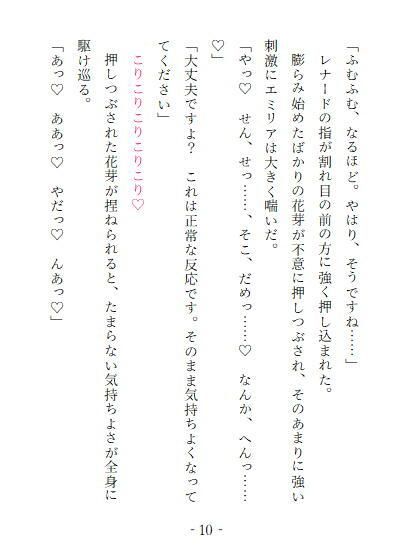 「ふむふむ、なるほど。やはり、そうですね……」
　レナードの指が割れ目の前の方に強く押し込まれた。
　膨らみ始めたばかりの花芽が不意に押しつぶされ、そのあまりに強い
刺激にエミリアは大きく喘いだ。
「やっ♡　せん、せっ……、そこ、だめっ……♡　なんか、へんっ……
♡」
「大丈夫ですよ？　これは正常な反応です。そのまま気持ちよくなって
てください」
　こりこりこりこりこり♡
　押しつぶされた花芽が捏ねられると、たまらない気持ちよさが全身に
駆け巡る。
「あっ♡　ああっ♡　やだっ♡　んあっ♡」
- 10 -